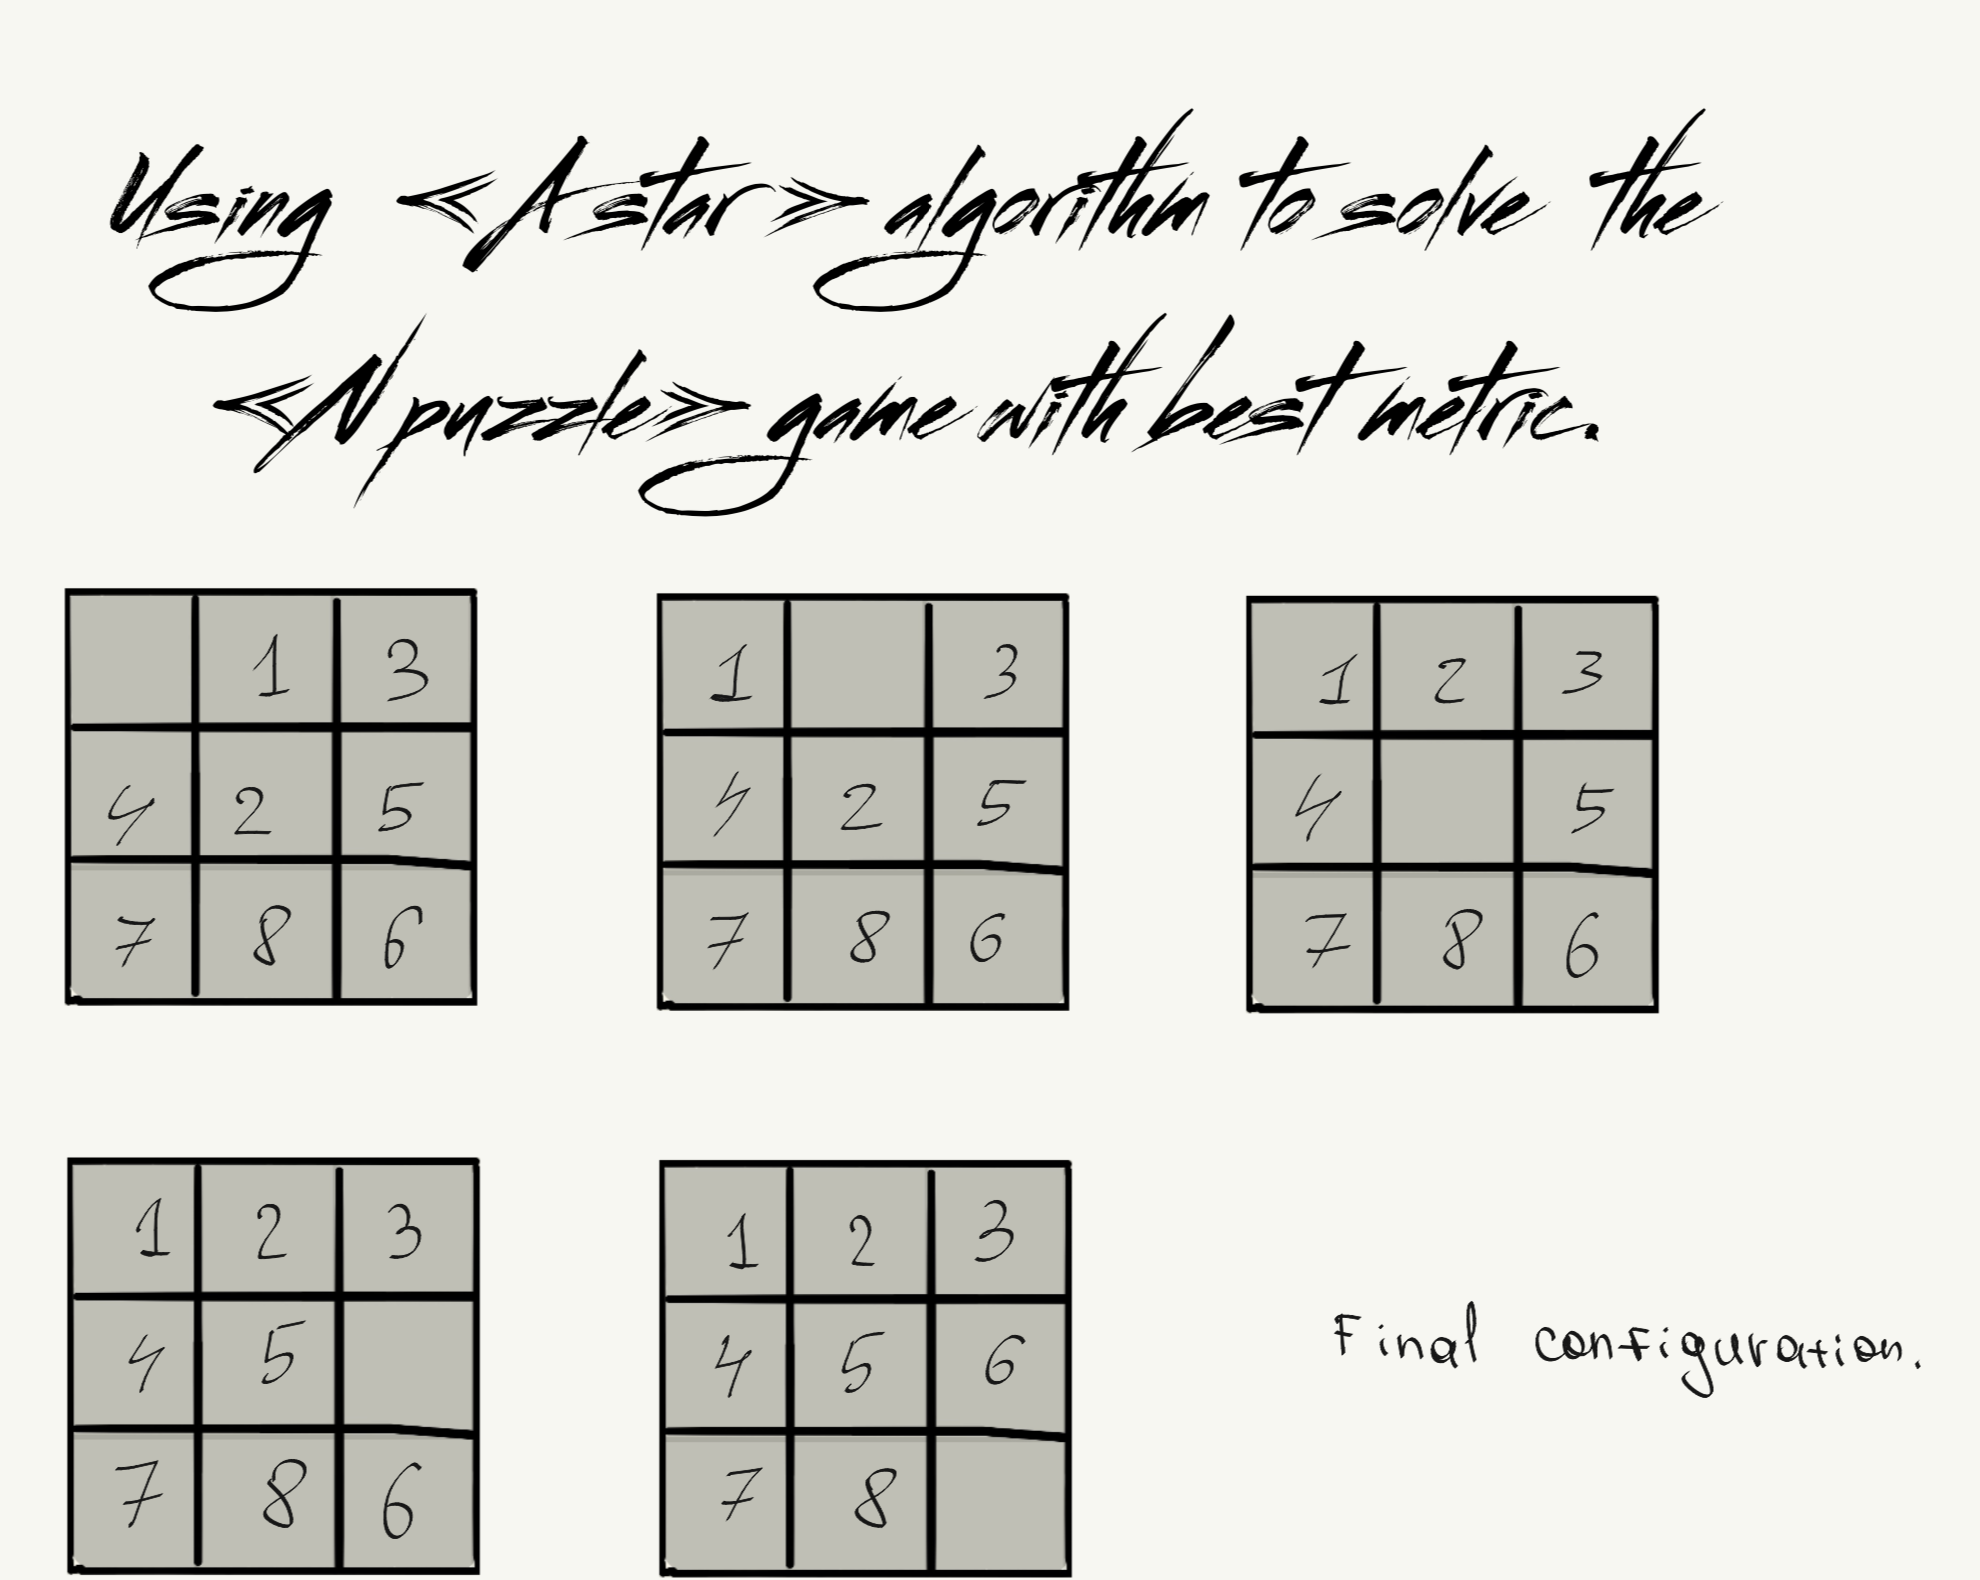 Using <A star> algorithm to solve the
<N puzzle> game with best metric.
1 3
4 2 5
7 8 6
1 3
4 2 5
7 8 6
1 2 3
4 5
7 8 6
1 2 3
4 5
7 8 6
1 2 3
4 5 6
7 8
Final configuration.